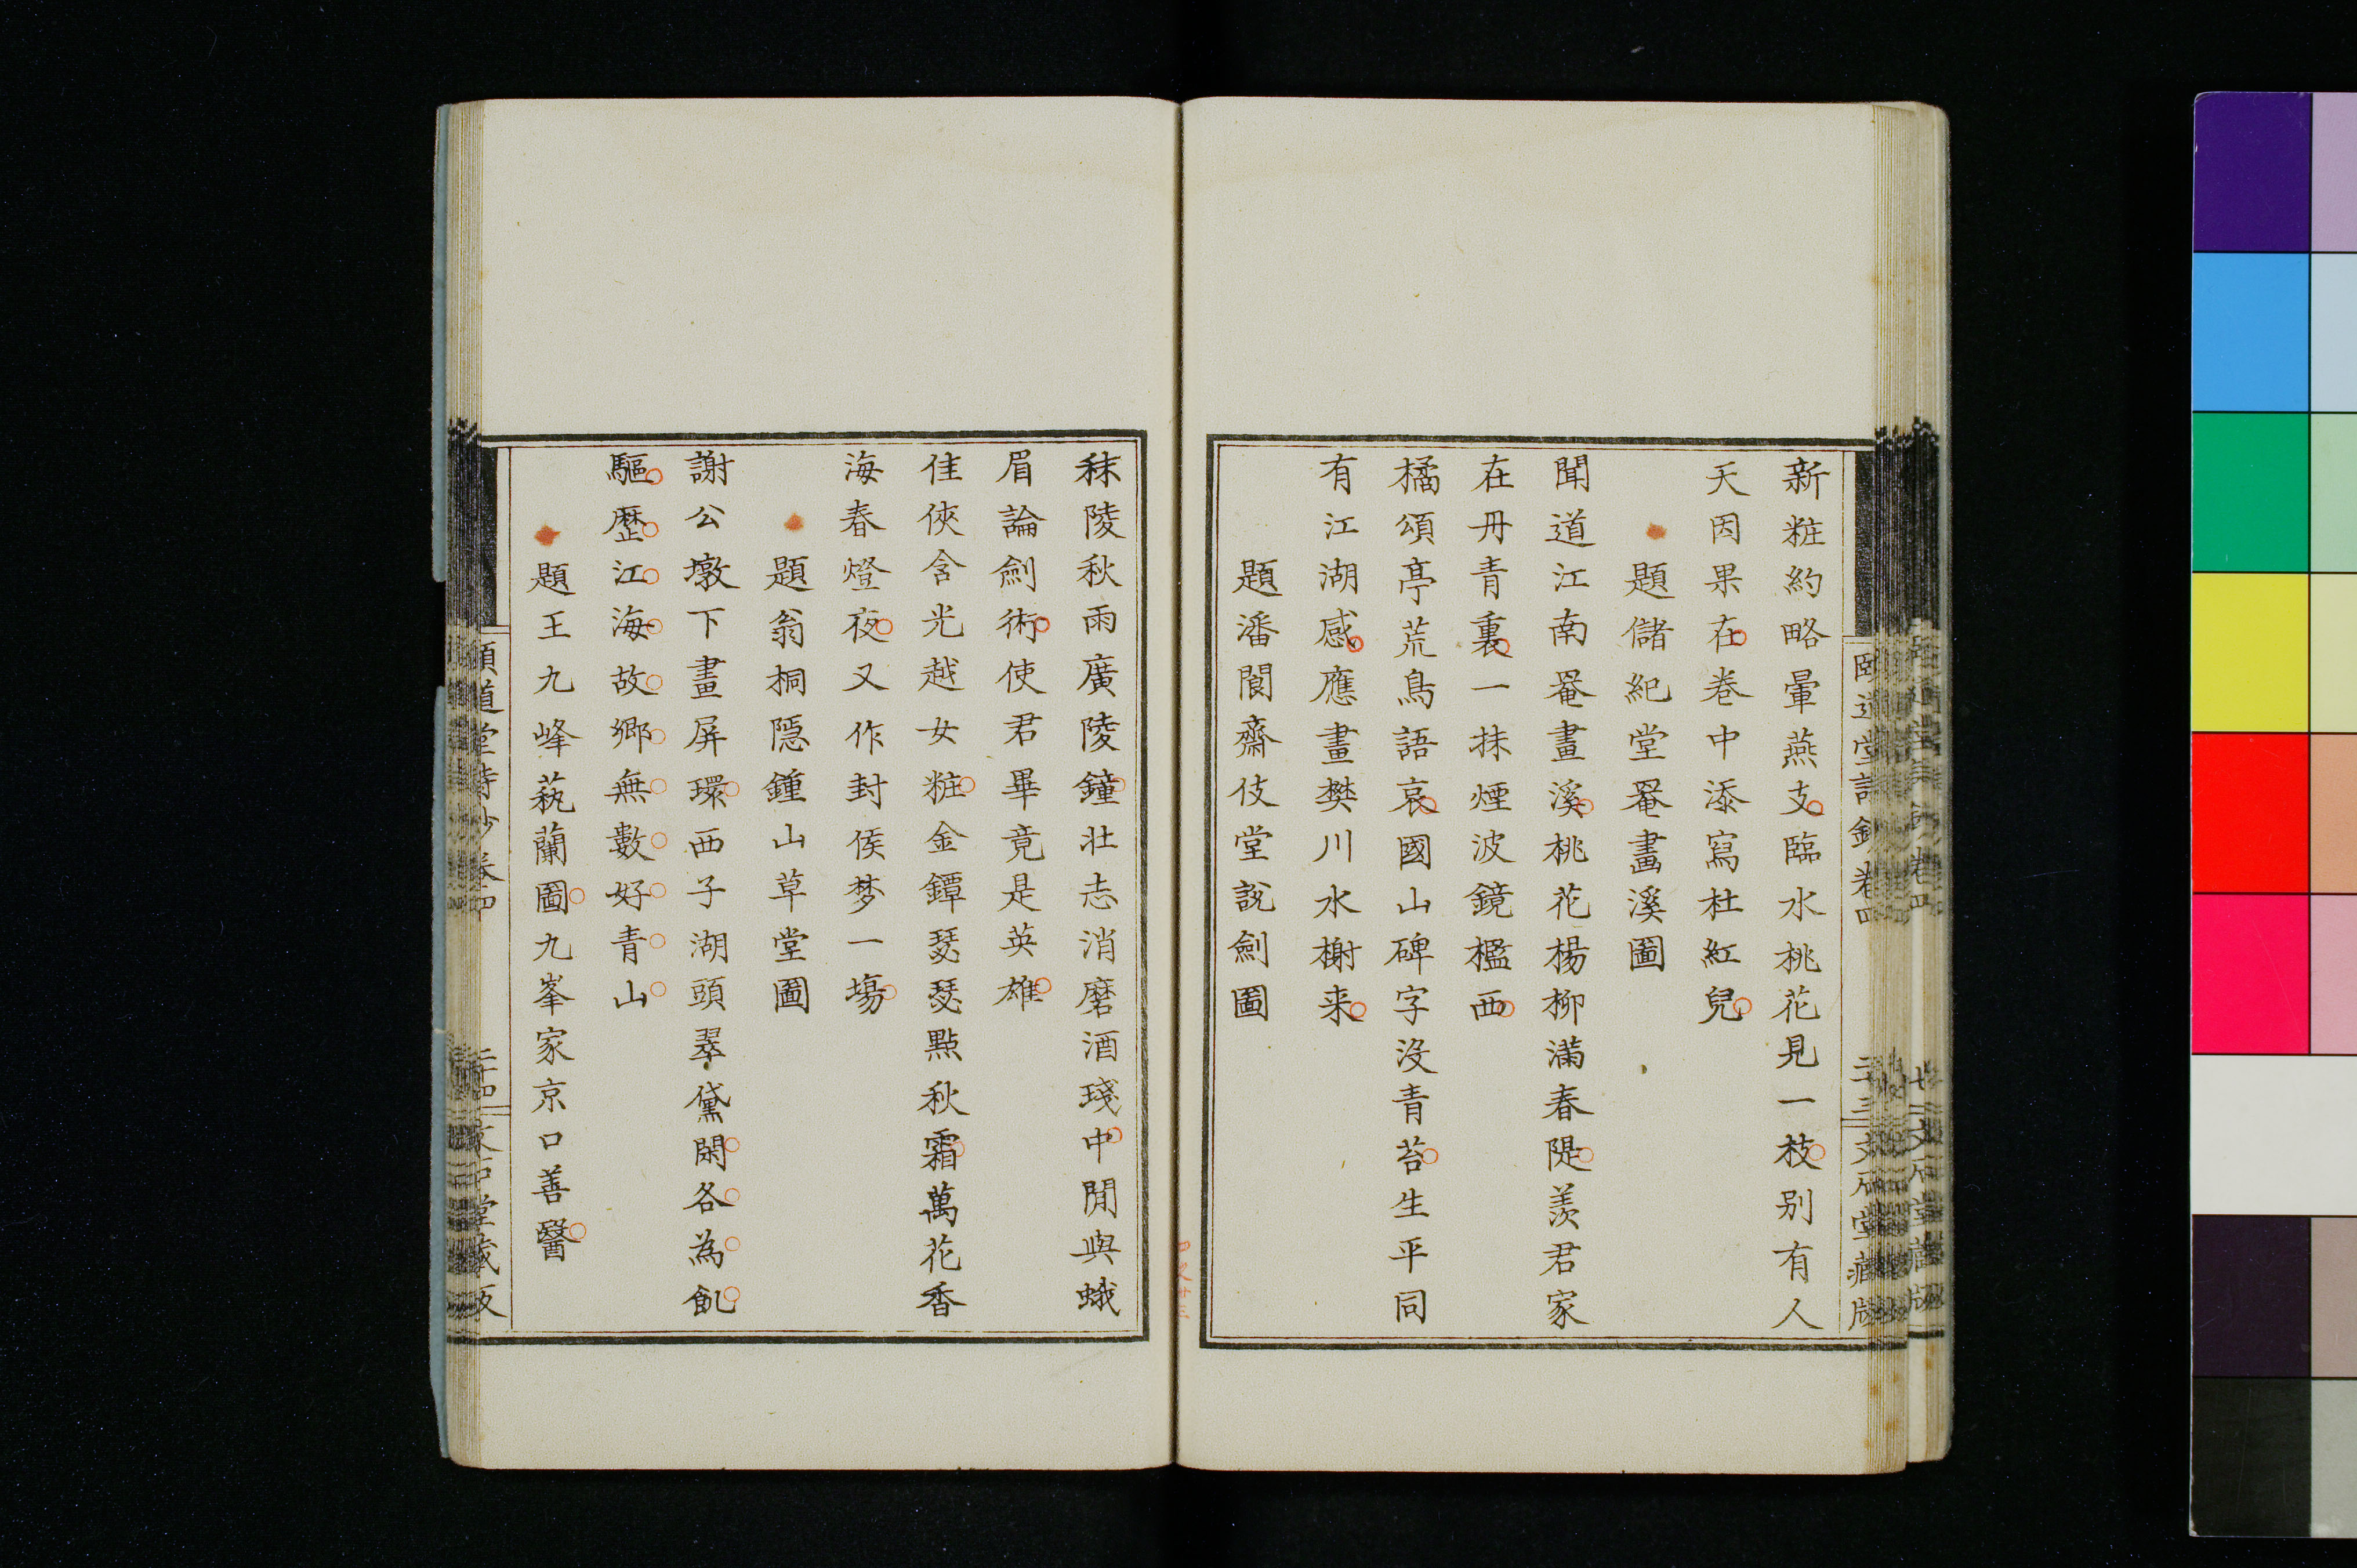 新粧約略暈燕支臨水桃花見一枝别有人
天因果在卷中添寫杜紅兒
題儲紀堂罨畫溪圖
聞道江南罨畫溪桃花楊柳滿春隄羨君家
在丹青裏一抹煙波鏡檻西
橘頌亭荒鳥語哀國山碑字沒青苔生平同
有江湖感應畫樊川水榭来
題潘閬齋伎堂説劍圖
秣陵秋雨廣陵鐘壮志消磨酒琖中閒與蛾
眉論劍術使君畢竟是英雄
佳俠含光越女粧金鐔瑟瑟點秋霜萬花香
海春燈夜又作封侯梦一場
題翁桐隠鍾山草堂圖
謝公墩下畫屏環西子湖頭翠黛閑各為飢
驅歷江海故鄉無數好青山
題王九峰蓺蘭圖九峯家京口善醫
頤道堂詩鈔卷四
二十四